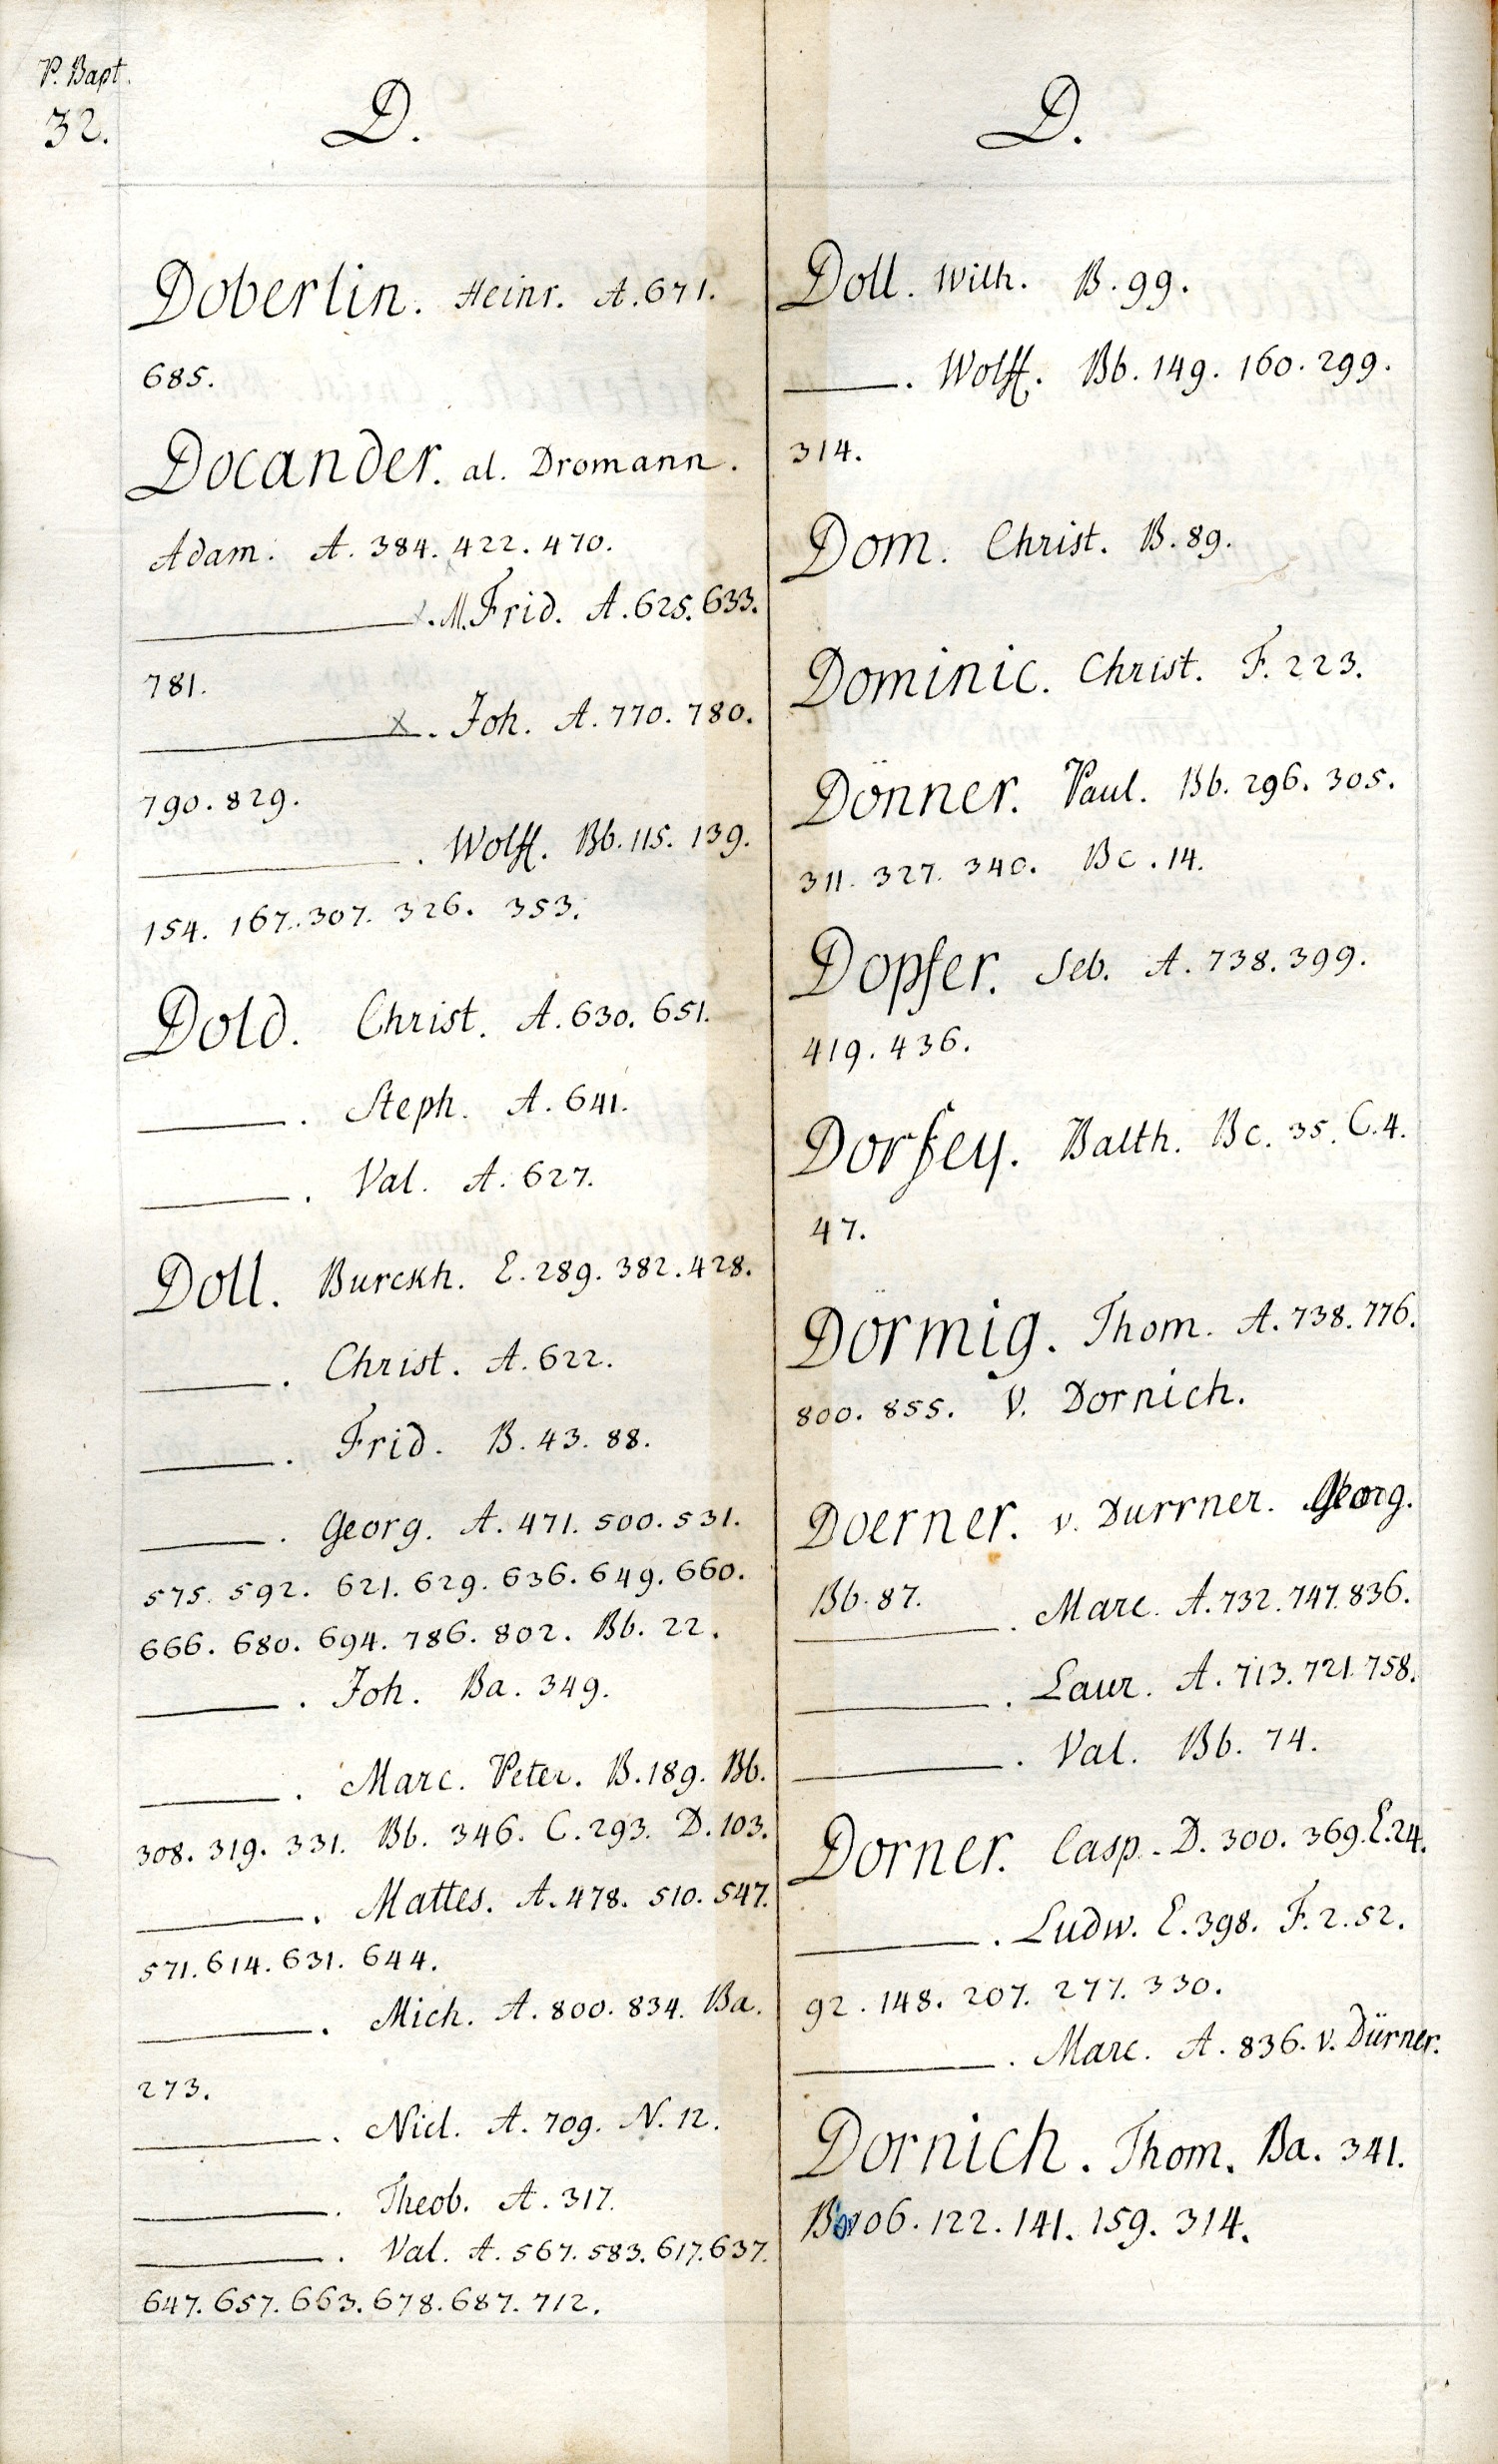 P. Bapt.
32.
D.
Doberlin. Heinr. A. 671.
685.
Docander. al. Dromann.
Adam. A. 384. 422. 470.
———. M. Frid. A. 625. 633.
781.
———x. Joh. A. 770. 780.
790. 829.
———. Wolff. Bb. 115. 139.
154. 167. 307. 326. 353.
Dold. Christ. A. 630. 651.
———. Steph. A. 641.
———. Val. A. 627.
Doll. Burckh. E. 289. 382. 428.
———. Christ. A. 622.
———. Frid. B. 43. 88.
———. Georg. A. 471. 500. 531.
575. 592. 621. 629. 636. 649. 660.
666. 680. 694. 786. 802. Bb. 22.
———. Joh. Ba. 349.
———. Marc. Peter. B. 189. Bb.
308. 319. 331. Bb. 346. C. 293. D. 103.
———. Mattes. A. 478. 510. 547.
571. 614. 631. 644.
———. Mich. A. 800. 834. Ba.
273.
———. Nicl. A. 709. N. 12.
———. Theob. A. 317.
———. Val. A. 567. 583. 617. 637.
647. 657. 663. 678. 687. 712.
D.
Doll. Wilh. B. 99.
———. Wolff. Bb. 149. 160. 299.
314.
Dom. Christ. B. 89.
Dominic. Christ. F. 223.
Dönner. Paul. Bb. 296. 305.
311. 327. 340. Bc. 14.
Dopfer. Seb. A. 738. 399.
419. 436.
Dorfey. Balth. Bc. 35. C. 4.
47.
Dörmig. Thom. A. 738. 776.
800. 855. V. Dornich.
Doerner. v. Durrner. Georg.
Bb. 87.
———. Marc. A. 732. 747. 836.
———. Laur. A. 713. 721. 758.
———. Val. Bb. 74.
Dorner. Casp. D. 300. 369. E. 24.
———. Ludw. E. 398. F. 2. 52.
92. 148. 207. 277. 330.
———. Marc. A. 836. v. Dürner.
Dornich. Thom. Ba. 341.
122. 141. 159. 314.